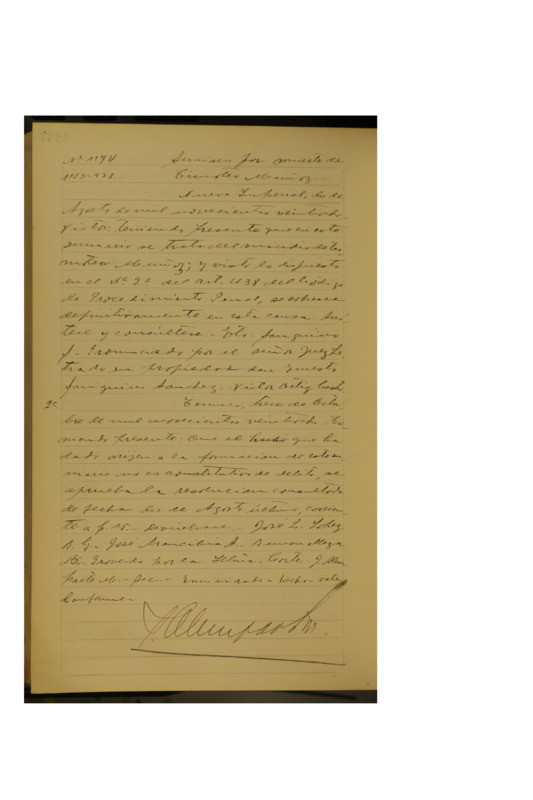 Nº 1174 Sumario por muerte de
1163-928. Timoteo Muñoz.
Nueva Imperial, dos de
Agosto de mil novecientos veintiocho.
Vistos: teniendo presente que en este
sumario se trata del suicidio de Ti-
moteo Muñoz; y visto lo dispuesto
en el Nº 2º del art. 438 del Código
de Procedimiento Penal, se sobresee
definitivamente en esta causa. Anó-
tese y consúltese. Fdo. Sanquino
S. Pronunciado por el señor Juez Le-
trado en propiedad don Ernesto
Sanquino Sánchez. Victor Ortiz Cast.
2º. Temuco, trece de Octu-
bre de mil novecientos veintiocho. Te-
niendo presente: Que el hecho que ha
dado origen a la formacion de este su-
mario no es constitutivo de delito, se
aprueba la resolucion consultada
de fecha dos de Agosto último, corrien-
te a f. 15. Devuélvase. Jose L. López
B. G. Jose Arancibia A. Ramon Meza
B. Proveido por la Iltma. Corte. J. Alem
parte M. Sec. Enmendado - hecho - vale
Conforme.